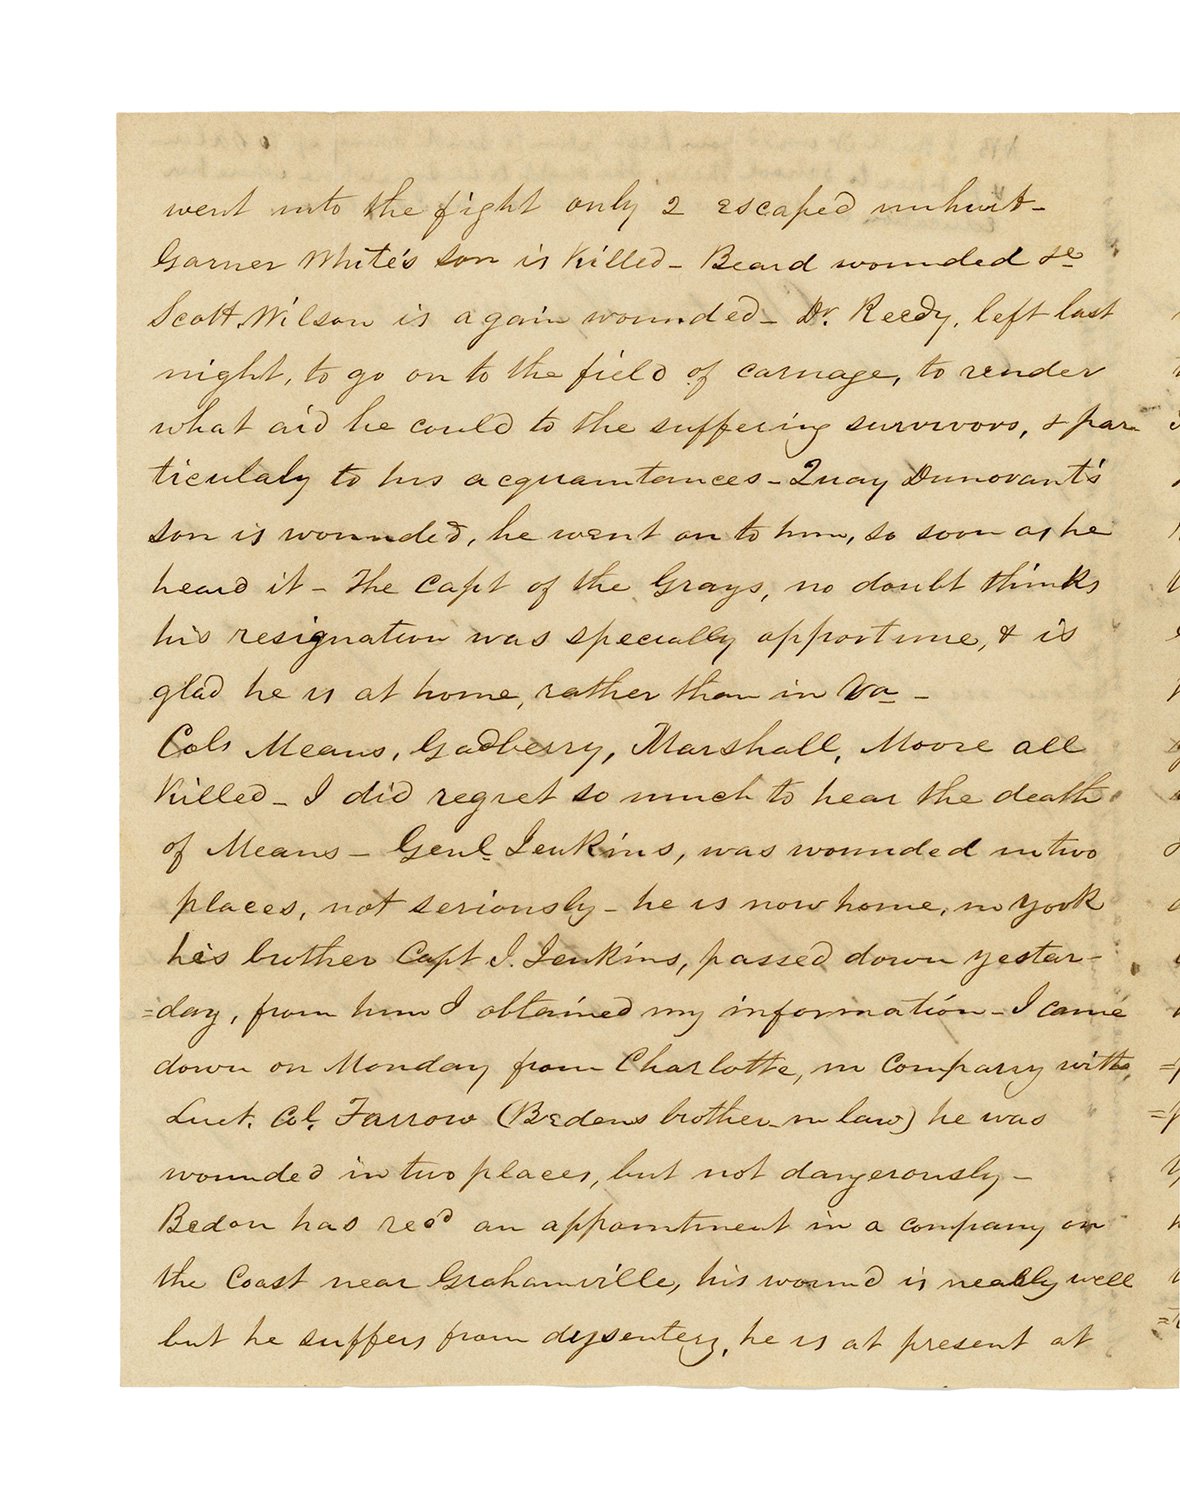 went into the fight only 2 escaped unhurt -
Garner White's son is killed - Beard wounded &c
Scott Wilson is again wounded - Dr. Reedy, left last
night, to go on to the field of carnage, to render
what aid he could to the suffering survivors, & par
ticulaly to his acquaintances - Quay Dunovant's
son is wounded, he went on to him, so soon as he
heard it - The Capt of the Grays, no doubt thinks
his resignation was specially opportune, & is
glad he is at home, rather than in Va -
Cols Means, Gadberry, Marshall, Moore all
killed - I did regret so much to hear the death
of Means - Genl. Jenkins, was wounded in two
places, not seriously - he is now home, in York
his brother Capt J. Jenkins, passed down yester-
=day, from him I obtained my information - I came
down on Monday from Charlotte, in Company with
Lieut. Col. Farrow (Bedons brother in law) he was
wounded in two places, but not dangerously -
Bedon has recd an appointment in a company on
the Coast near Grahamville, his wound is nearly well
but he suffers from dysentery, he is at present at